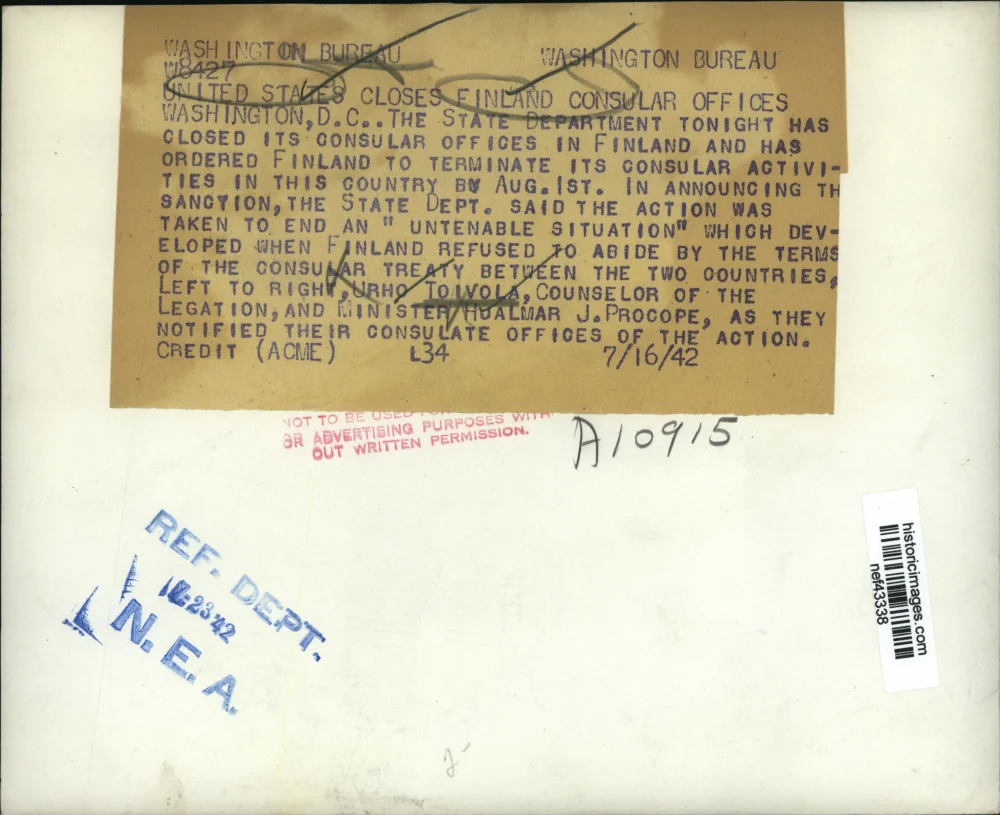 WASHINGTON BUREAU WASHINGTON BUREAU
W8427
UNITED STATES CLOSES FINLAND CONSULAR OFFICES
WASHINGTON, D.C..THE STATE DEPARTMENT TONIGHT HAS
CLOSED ITS CONSULAR OFFICES IN FINLAND AND HAS
ORDERED FINLAND TO TERMINATE ITS CONSULAR ACTIVI-
TIES IN THIS COUNTRY BY AUG.1ST. IN ANNOUNCING TH
SANCTION, THE STATE DEPT. SAID THE ACTION WAS
TAKEN TO END AN " UNTENABLE SITUATION" WHICH DEV-
ELOPED WHEN FINLAND REFUSED TO ABIDE BY THE TERMS
OF THE CONSULAR TREATY BETWEEN THE TWO COUNTRIES,
LEFT TO RIGHT, URHO TOIVOLA, COUNSELOR OF THE
LEGATION, AND MINISTER HUALMAR J. PROCOPE, AS THEY
NOTIFIED THEIR CONSULATE OFFICES OF THE ACTION.
CREDIT (ACME) L34 7/16/42
NOT TO BE USED
OR ADVERTISING PURPOSES WITH
OUT WRITTEN PERMISSION.
A10915
REF. DEPT.
23 42
N. E. A.
historicimages.com
nef43338